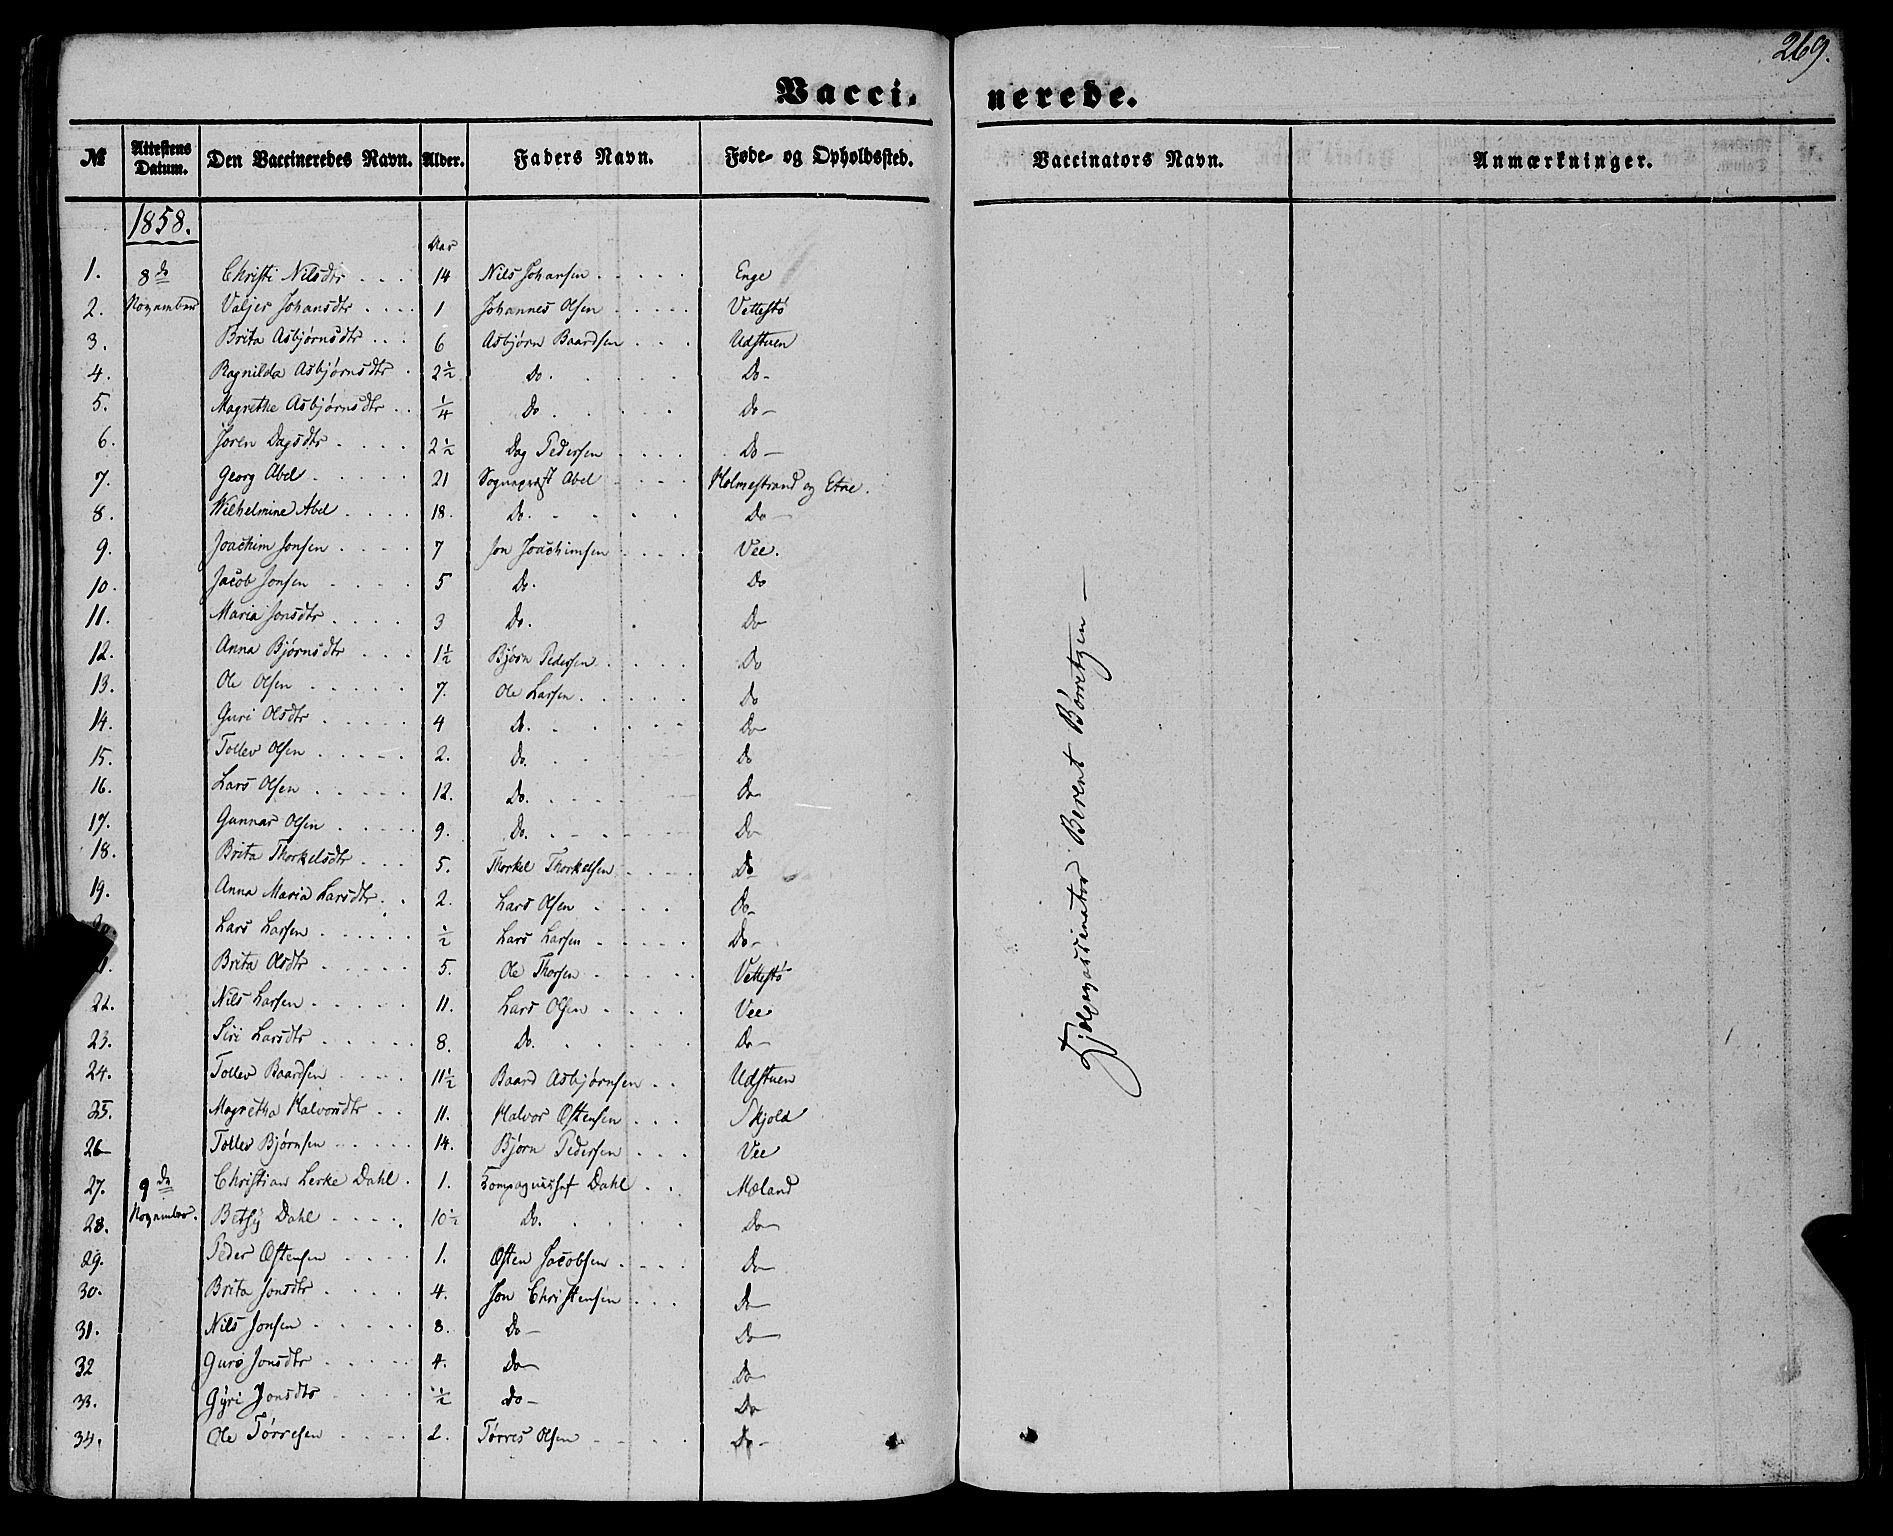 269.
Vacci- nerede.
№ Attestens Datum. Den Vaccineredes Navn. Alder. Faders Navn. Føde- og Opholdssted. Vaccinators Navn. Anmærkninger.
1858.
Aar
1. 8de Christi Nilsdtr 14 Nils Johansen Enge
2. November Valjer Johansdtr 1 Johannes Olsen Vettestø
3. Brita Asbjørnsdtr 6 Asbjørn Baardsen Udstuen
4. Ragnilda Asbjørnsdtr 2½ Do. Do-
5. Magrethe Asbjørnsdtr ¼ Do Do-
6. Joren Dagsdtr 2½ Dag Pedersen Do-
7. Georg Abel 21 Sognepræst Abel Holmestrand og Etne.
8. Wilhelmine Abel 18. Do. Do-
9. Joachim Jonsen 7 Jon Joachimsen Vee.
10. Jacob Jonsen 5 Do. Do
11. Maria Jonsdtr 3 Do. Do
12. Anna Bjørnsdtr 1½ Bjørn Pedersen Do
13. Ole Olsen 7. Ole Larsen Do
14. Guri Olsdtr 4 Do. Do
15. Tollev Olsen 2. Do. Do
16. Lars Olsen 12. Do. Do
17. Gunnar Olsen 9. Do. Do
18. Brita Thorkelsdtr 5. Thorkel Thorkelsen Do
19. Anna Maria Larsdtr 2. Lars Olsen Do-
Lars Larsen ½ Lars Larsen Do-
Brita Olsdtr 5. Ole Thorsen Vettestø
22. Nils Larsen 11. Lars Olsen Vee
23. Siri Larsdtr 8. Do. Do-
24. Tollev Baardsen 11½ Baard Asbjørnsen Udstuen
25. Magretha Halvorsdtr 11. Halvor Østensen Skjold
26 Tollev Bjørnsen 14. Bjørn Pedersen Vee
27. 9de Christian Lerke Dahl 1. Kompagnichef Dahl Mæland
28. November. Betsy Dahl 10½ Do. Do
29. Peder Østensen 1. Østen Jacobsen Do
30. Brita Jonsdtr 4. Jon Christensen Do
31. Nils Jonsen 8. Do- Do
32 Guro Jonsdtr 4. Do Do
33. Gyri Jonsdtr ½ Do- Do
34. Ole Tørresen 2. Tørres Olsen Do-
Hjelpevaccinatør Berent Børretzen-